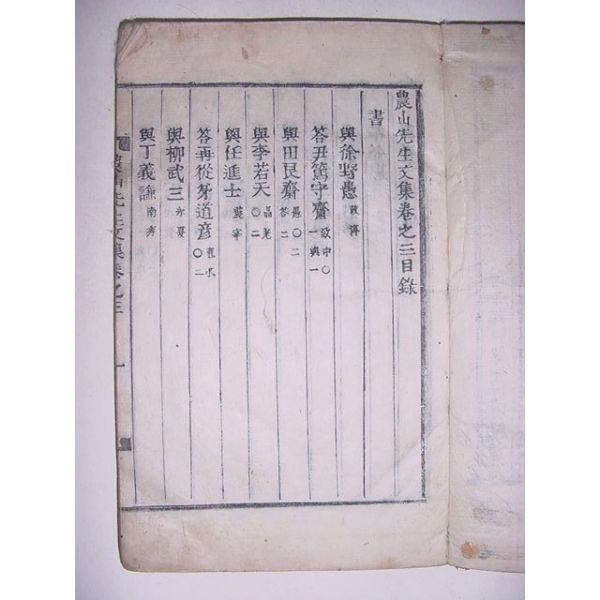 農山先生文集卷之三目錄
書
與徐野愚
答尹篤守齋 致中〇一與一
與田艮齋 愚〇二答二
與李若天 〇二
與任進士
答再從弟道彦 〇二
與柳武三 永夏
與丁義謙 南秀
農山先生文集卷之三 一